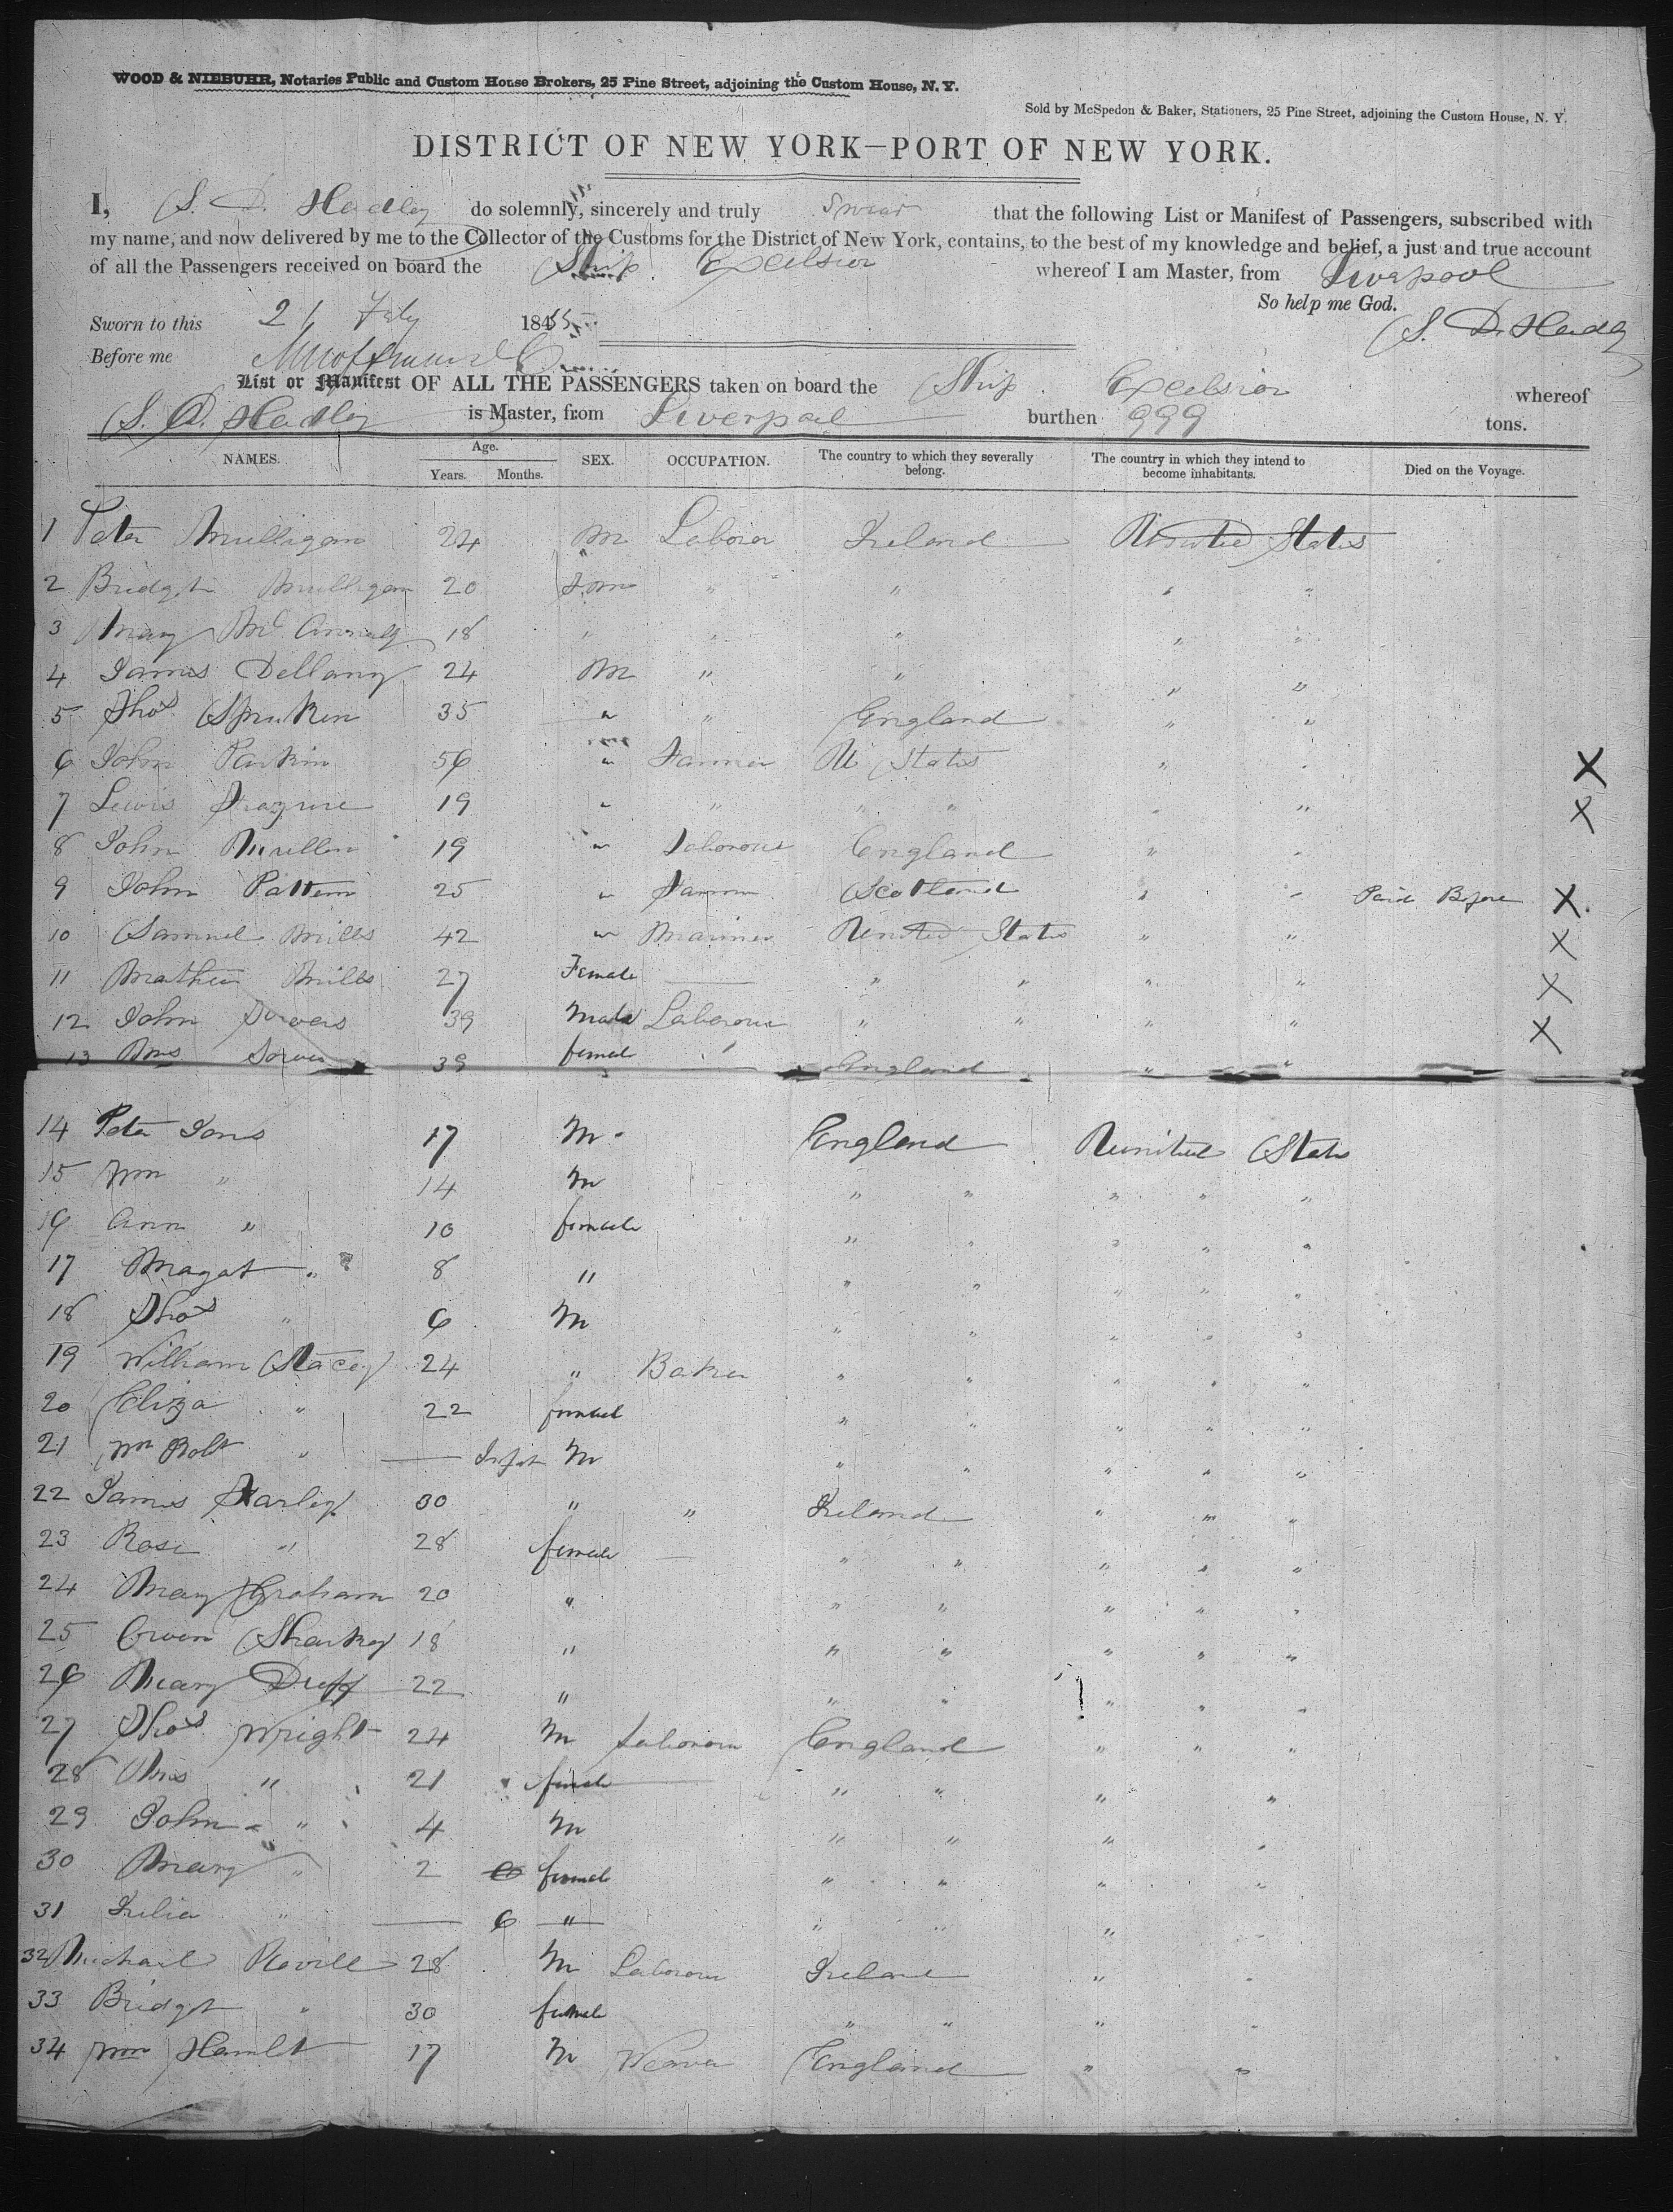 WOOD & NIEBUHR, Notaries Public and Custom House Brokers, 25 Pine Street, adjoining the Custom House, N. Y.
Sold by McSpedon & Baker, Stationers, 25 Pine Street, adjoining the Custom House, N. Y.
DISTRICT OF NEW YORK—PORT OF NEW YORK.
I, S. D. Hadley do solemnly, sincerely and truly swear that the following List or Manifest of Passengers, subscribed with
my name, and now delivered by me to the Collector of the Customs for the District of New York, contains, to the best of my knowledge and belief, a just and true account
of all the Passengers received on board the Ship Excelsior whereof I am Master, from Liverpool
So help me God.
Sworn to this 21 July 1855
S. D. Hadley
Before me
List or Manifest OF ALL THE PASSENGERS taken on board the Ship Excelsior whereof
S. D. Hadley is Master, from Liverpool burthen 999 tons.
NAMES. Age. Years. Months. SEX. OCCUPATION. The country to which they severally belong. The country in which they intend to become inhabitants. Died on the Voyage.
1 Peter Mulligan 24 M Laborer Ireland United States
2 Bridget Mulligan 20 Fem " " " "
3 Mary 18 " " " " "
4 James Dellany 24 M " " " "
5 Thos 35 " " England " "
6 John Parkin 56 " Farmer U States " " X
7 Lewis 19 " " " " " " X
8 John Mullen 19 " Laborour England " "
9 John Pattern 25 " Farmer Scotland " " Paid Before X
10 Samuel Mills 42 " Mariner United States " " X
11 Mills 27 Female " " " " X
12 John 39 Male Laborour " " " " X
13 Mrs 39 female England " "
14 Peter Jons 17 M England United States
15 Wm " 14 M " " " " "
16 Ann " 10 female " " " " "
17 Magat " 8 " " " " " "
18 Thos " 6 M " " " " "
19 William Stacey 24 " Baker " " " " "
20 Eliza " 22 female " " " " "
21 Wm Robt " Infat M " " " " "
22 James Farley 30 " " Ireland " " "
23 Rose " 28 female " " " " "
24 Mary Graham 20 " " " " " "
25 Owen Sharkey 18 " " " " " "
26 Mary Duff 22 " " " " " "
27 Thos Wright 24 M Laborour England " " "
28 Mrs " 21 female " " " "
29 John " 4 M " " " "
30 Mary " 2 female " " " "
31 Julia " 6 " " " " "
32 Michael 28 M Laborour Ireland " "
33 Bridget " 30 female " " " "
34 Wm Hamlet 17 M Weaver England " "